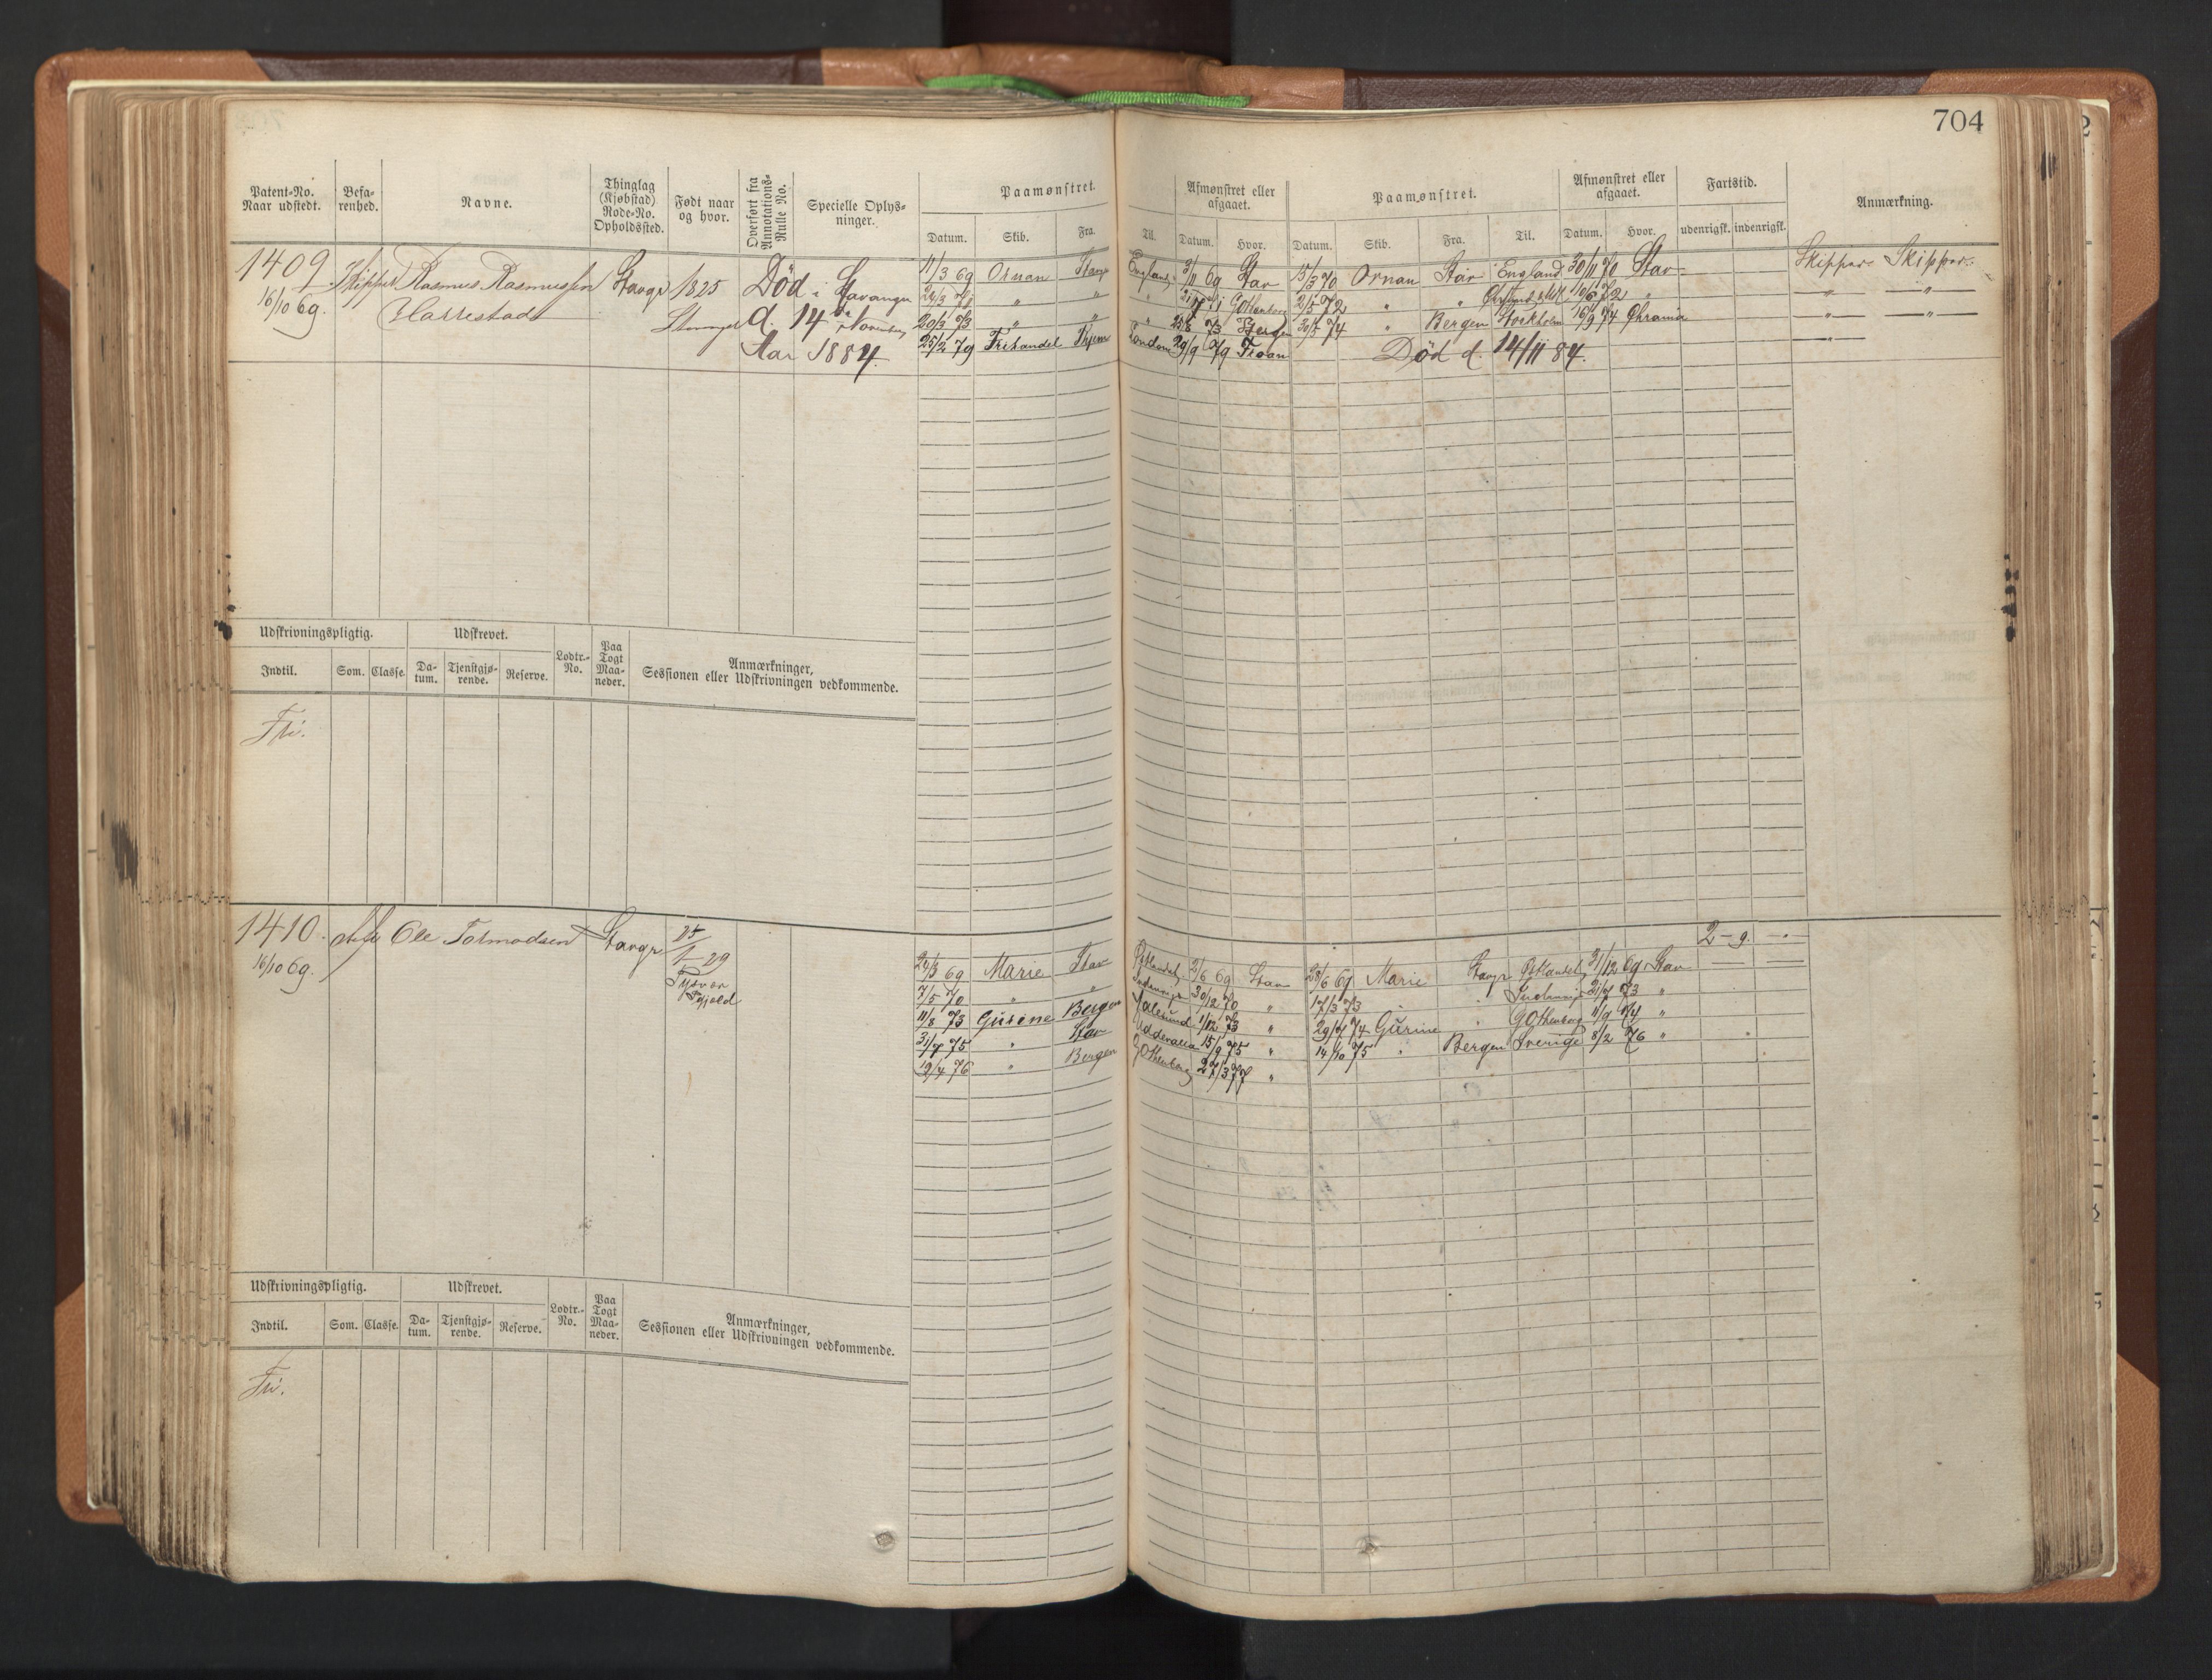 704
Patent-No. Naar udstedt.
Befa-renhed.
Navne.
Thinglag (Kjøbstad) Rode-No. Opholdssted.
Født naar og hvor.
Overført fra Annotations-Rulle No.
Specielle Oplys-ninger.
Paamønstret.
Afmønstret eller afgaaet.
Paamønstret.
Afmønstret eller afgaaet.
Fartstid.
Anmærkning.
Datum. Skib. Fra. Til. Datum. Hvor. Datum. Skib. Fra. Til. Datum. Hvor. udenrigsk. indenrigsk.
1409 Skipper Rasmus Rasmussen Stavgr 1825 Død i Stavanger 11/3 69 Ornan Stavgr England 3/11 69 Stav 15/3 70 Ornan Stav England 30/11 70 Stav Skipper Skipper
16/10 69. Harrestad Stavanger d. 14de November 24/3 71 " " " Gothenborg 2/5 72 " " 10/6 72 " — " — — " —
20/3 73 " " " 25/8 73 Bergen 30/5 74 " Bergen Stockholm 16/9 74 Chrania — " — — " —
Aar 1884. 25/2 79 Frihandel London 29/9 79 Død d. 14/11 84. — " —
Udskrivningspligtig. Udskrevet. Lodtr.-No. Paa Togt Maa-neder. Anmærkninger, Sessionen eller Udskrivningen vedkommende.
Indtil. Som. Classe. Da-tum. Tjenstgjø-rende. Reserve.
Fri.
1410. Ole Tormodsen Stavgr 25/1-29 2 - 9. - " -
16/10 69. Tysvær 24/3 69 Marie Stav 2/6 69 Stav 28/6 69 Marie Stavgr 31/12 69 Stav
Fjeld 7/5 70 " " 30/12 70 " 17/3 73 " " 21/7 73 "
11/8 73 Gurine Bergen Aalesund 1/12 73 " 29/4 74 Gurine " Gothenborg 11/9 74 "
31/7 75 " Stav Uddevalla 15/9 75 " 14/10 75 " Bergen Sverige 8/2 76 "
19/4 76 " Bergen Gothenborg 27/3 77 "
Udskrivningspligtig. Udskrevet. Lodtr.-No. Paa Togt Maa-neder. Anmærkninger, Sessionen eller Udskrivningen vedkommende.
Indtil. Som. Classe. Da-tum. Tjenstgjø-rende. Reserve.
Fri.